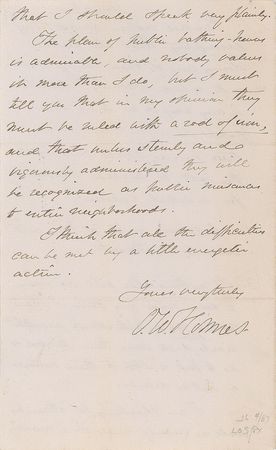 that I should speak very plainly.
The plan of public bathing-houses
is admirable, and nobody values
it more than I do, but I must
tell you that in my opinion they
must be ruled with a rod of iron,
and that unless sternly and
vigorously administered they will
be recognized as public nuisances
to entire neighborhoods.
I think that all the difficulties
can be met by a little energetic
action.
Yours very truly
O. W. Holmes